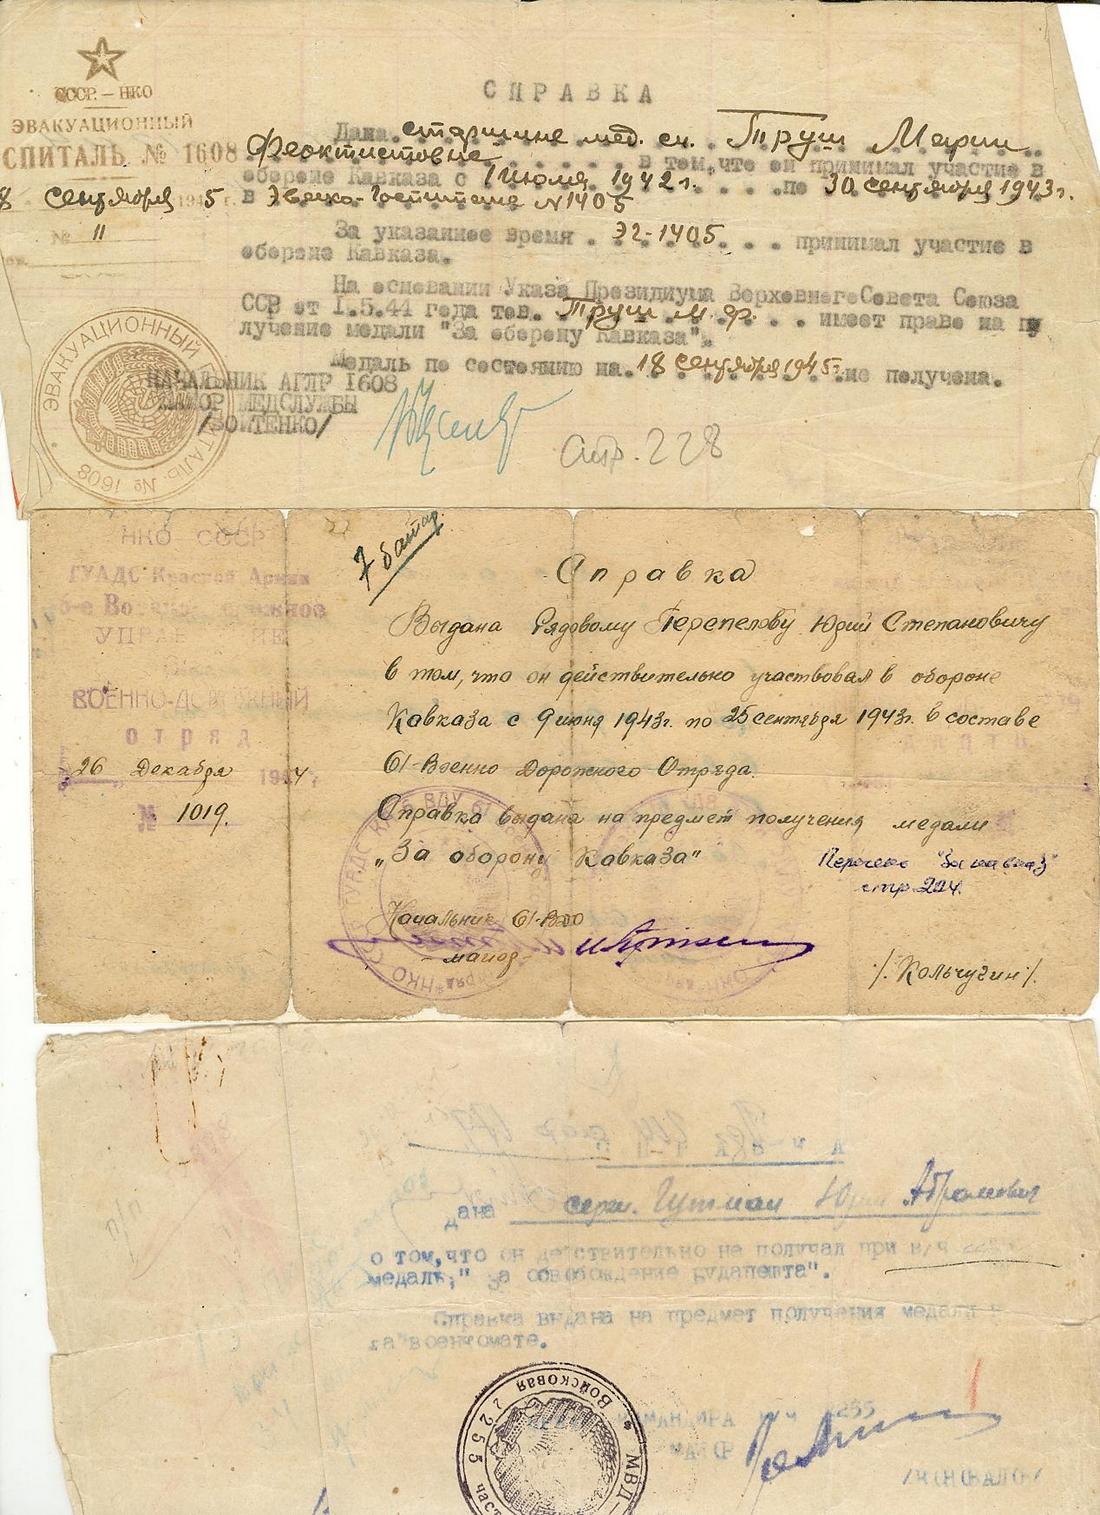 СССР – НКО
ЭВАКУАЦИОННЫЙ
СПИТАЛЬ № 1608
8 сентября 1945 г.
№ 11
СПРАВКА
Дана старшине мед. сл. Труш Марии
Феоктистовне в тем,что ей принимал участие в
обероне Кавказа с 1 июля 1942 г. по 30 сентября 1943 г.
в Эвако-Госпитале №1405
За указанное время ЭГ-1405 принимал участие в
обероне Кавказа.
На основании Указа Президиума Верховнего Совета Союза
ССР от 1.5.44 года тов. Труш М. Ф. имеет право на пу
лучение медали "За оберону Кавказа".
Медаль по состоянию на 18 сентября 1945 г. не получена.
НАЧАЛЬНИК АГЛР 1608
МАЙОР МЕДСЛУЖБЫ
/ВОЙТЕНКО/
стр. 228
ЭВАКУАЦИОННЫЙ ГОСПИТАЛЬ № 1608
НКО СССР
ГУАДС Красной Армии
УПРАВЛЕНИЕ
ВОЕННО-ДОРОЖНЫЙ
отряд
26 Декабря 1944 г.
№ 1019.
7 батар.
Справка
Выдана Рядовому Перепелову Юрий Степановичу
в том, что он действительно участвовал в обороне
Кавказа с 9 июня 1943г. по 25 сентября 1943г. в составе
61-Военно Дорожного Отряда.
Справка выдана на предмет получения медали
„За оборону Кавказа"
стр. 224.
Начальник 61-ВДО
-майор-
/Кольчугин/.
дана серж. Гутман Юрий Абрамович
о том,что он действительно не получал при в/ч
медаль;" За освобождение Будапешта".
Справка выдана на предмет получения медали в
га военкомате.
КОМАНДИРА В/Ч 2255
МАЙОР
/КОНОВАЛОВ/
МВД
Войсковая часть 2255